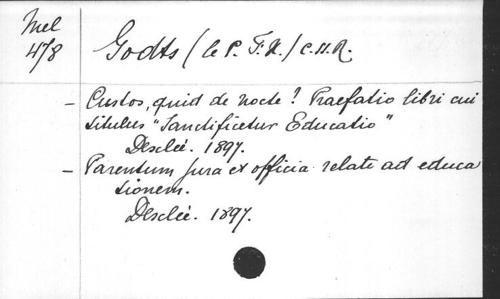 Mel
478
Godts (le P. F. X.) C.SS.R.
- Custos, quid de nocte? Praefatio libri cui
titulus "Sanctificetur Educatio"
Desclée. 1897.
- Parentum jura et officia relate ad educa
tionem.
Desclée. 1897.